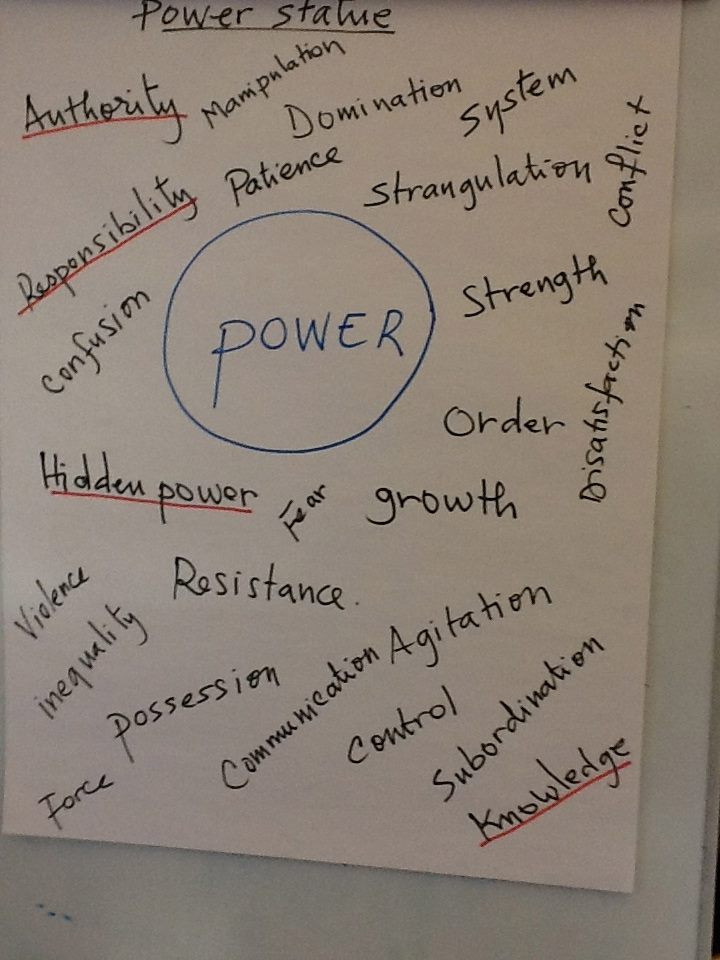 Power statue
Authority
Manipulation
Domination
System
Conflict
Responsibility
Patience
Strangulation
Confusion
POWER
Strength
Order
Disatisfaction
Hidden power
Fear
growth
Violence
Resistance.
inequality
Possession
Communication
Agitation
Control
Subordination
Force
Knowledge